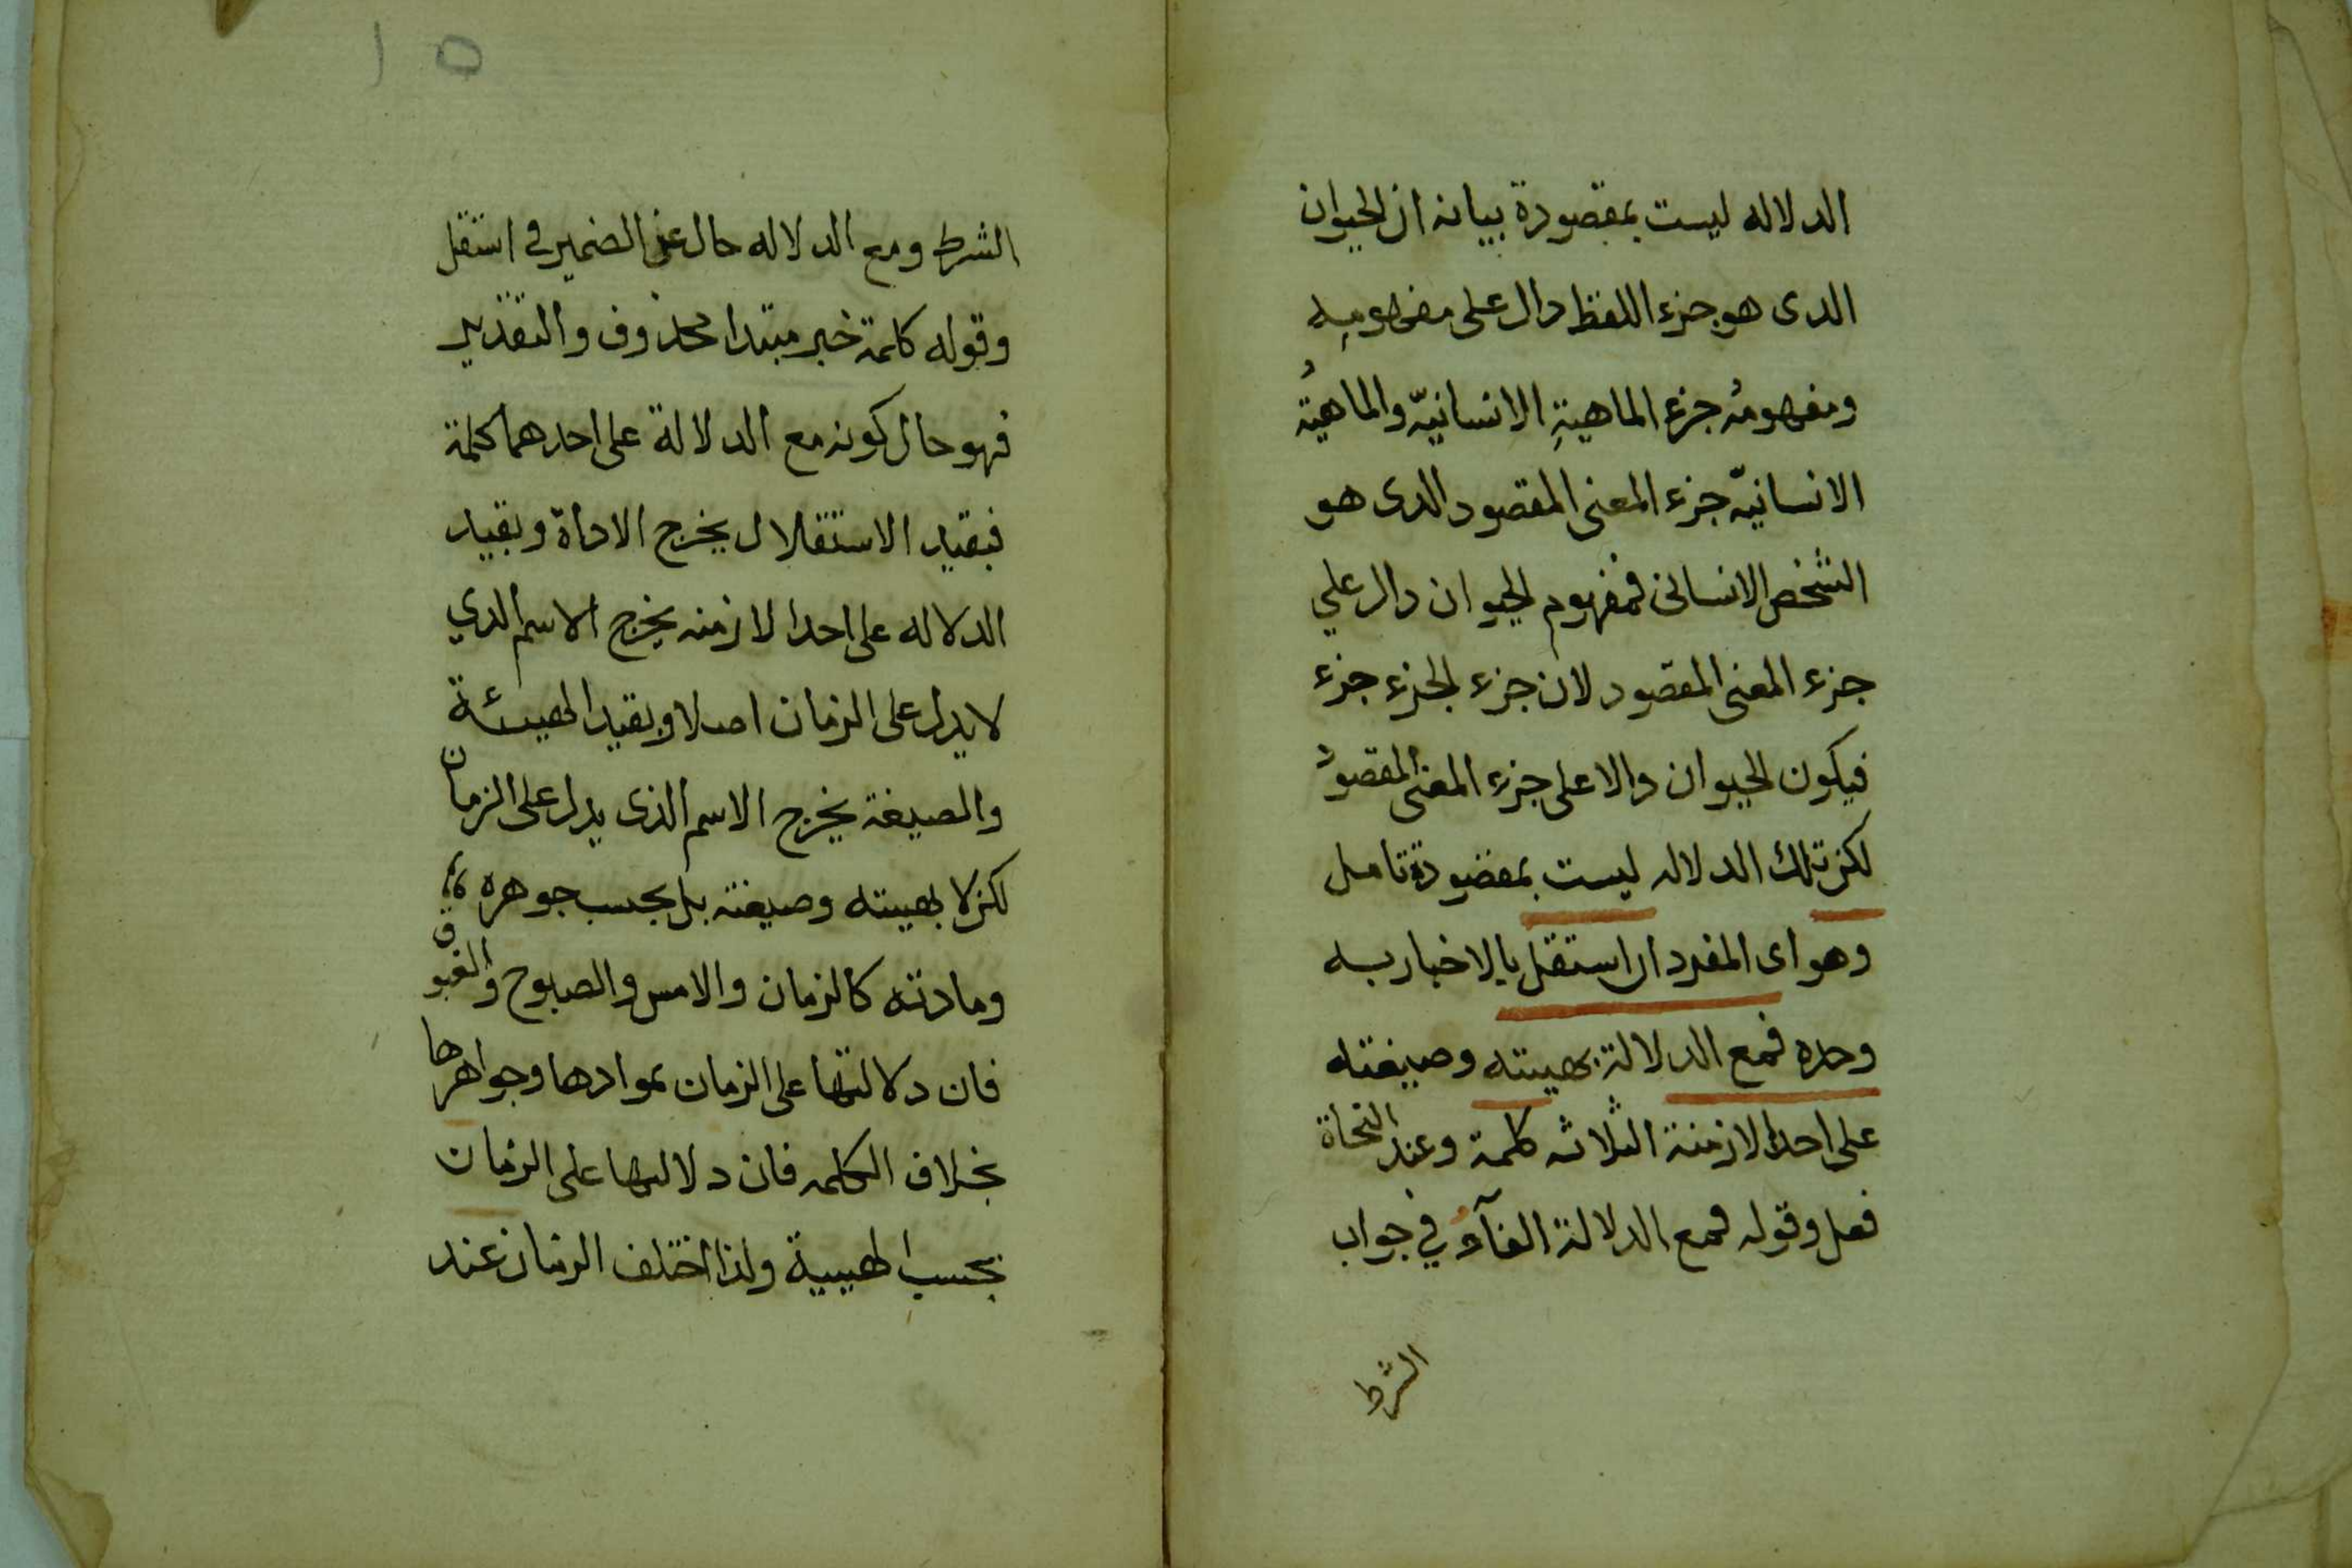 الدلاله ليست بمقصودة بيانه ان الحيوان
الدى هو جزء اللفظ دال على مفهومِه
ومفهومُه جزء الماهيةِ الانسانيّه والماهيّةُ
الانسانيّه جزء المعنى المقصود الدى هو
الشخص الانسانى فمفهوم الحيوان دال علي
جزء المعنى المقصود لان جزء الجزء جزء
فيكون الحيوان دالا على جزء المعنى المقصود
لكن تلك الدلاله ليست بمقصودة تامل
وهو اى المفرد ان استقل بالاخبار به
وحده فمع الدلالة بهيئته وصيغته
على احد الازمنة الثلاثه كلمة وعند النحاة
فعل وقوله فمع الدلالة الفآء في جواب
الشرط
١٥
الشرط ومع الدلاله حال عن الضمير فى استقل
وقوله كلمة خبر مبتدا محذوف والتقدير
فهو حال كونه مع الدلالة على احدهما كلمة
فبقيد الاستقلال يخرج الاداة وبقيد
الدلاله على احد الازمنه يخرج الاسم الدي
لا يدل على الزمان اصلا وبقيد الهيئة
والصيغة يخرج الاسم الذى يدل على الزمان
لكن لا بهيئته وصيغته بل بحسب جوهره
ومادته كالزمان والامس والصبوح والغبوق
فان دلالتها على الزمان بموادها وجواهرها
بخلاف الكلمه فان دلالتها على الزمان
بحسب الهيية ولذا اختلف الزمان عند